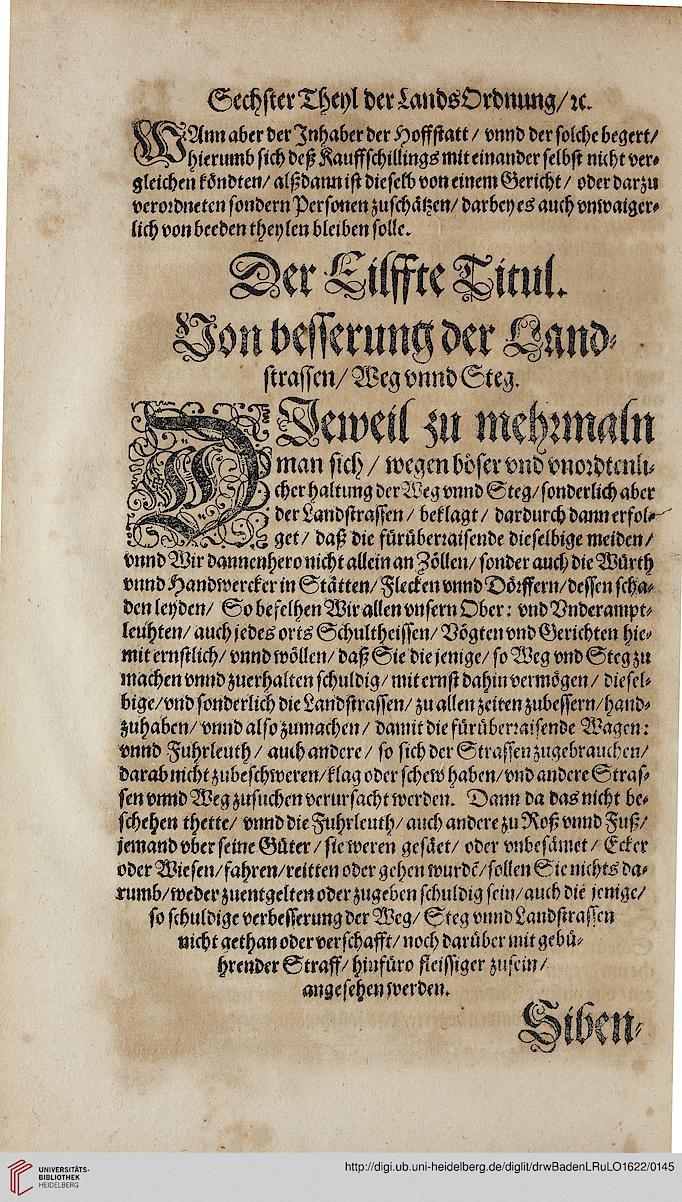 Sechster Theyl der LandsOrdnung/ ꝛc.
WAnn aber der Inhaber der Hoffstatt / vnnd der solche begert/
hierumb sich deß Kauffschillings mit einander selbst nicht ver⸗
gleichen köndten/ alßdann ist dieselb von einem Gericht / oder darzu
verordneten sondern Personen zuschätzen/ darbey es auch vnwaiger⸗
lich von beeden theylen bleiben solle.
Der Eilffte Titul.
Von besserung der Land⸗
strassen/ Weg vnnd Steg.
DJeweil zu mehrmaln
man sich / wegen böser vnd vnordtenli⸗
cher haltung der Weg vnnd Steg/ sonderlich aber
der Landstrassen / beklagt / dardurch dann erfol⸗
get / daß die fürüberraisende dieselbige meiden /
vnnd Wir dannenhero nicht allein an Zöllen/ sonder auch die Würth
vnnd Handwercker in Stätten/ Flecken vnnd Dörffern/ dessen scha⸗
den leyden/ So befelhen Wir allen vnsern Ober: vnd Vnderampt⸗
leuhten/ auch jedes orts Schultheissen/ Vögten vnd Gerichten hie⸗
mit ernstlich/ vnnd wöllen/ daß Sie die jenige/ so Weg vnd Steg zu
machen vnnd zuerhalten schuldig/ mit ernst dahin vermögen / diesel⸗
bige/ vnd sonderlich die Landstrassen/ zu allen zeiten zubessern/ hand⸗
zuhaben/ vnnd also zumachen / damit die fürüberraisende Wagen:
vnnd Fuhrleuth / auch andere / so sich der Strassen zugebrauchen/
darab nicht zubeschweren/ klag oder schew haben/ vnd andere Stras⸗
sen vnnd Weg zusuchen verursacht werden. Dann da das nicht be⸗
schehen thette/ vnnd die Fuhrleuth/ auch andere zu Roß vnnd Fuß/
jemand vber seine Güter / sie weren gesäet/ oder vnbesämet / Ecker
oder Wiesen/ fahren/ reitten oder gehen wurdē/ sollen Sie nichts da⸗
rumb/ weder zuentgelten oder zugeben schuldig sein/ auch die jenige/
so schuldige verbesserung der Weg/ Steg vnnd Landstrassen
nicht gethan oder verschafft/ noch darüber mit gebü⸗
hrender Straff/ hinfüro fleissiger zusein/
angesehen werden.
Siben⸗
UNIVERSITÄTS-
BIBLIOTHEK
HEIDELBERG
http://digi.ub.uni-heidelberg.de/diglit/drwBadenLRuLO1622/0145